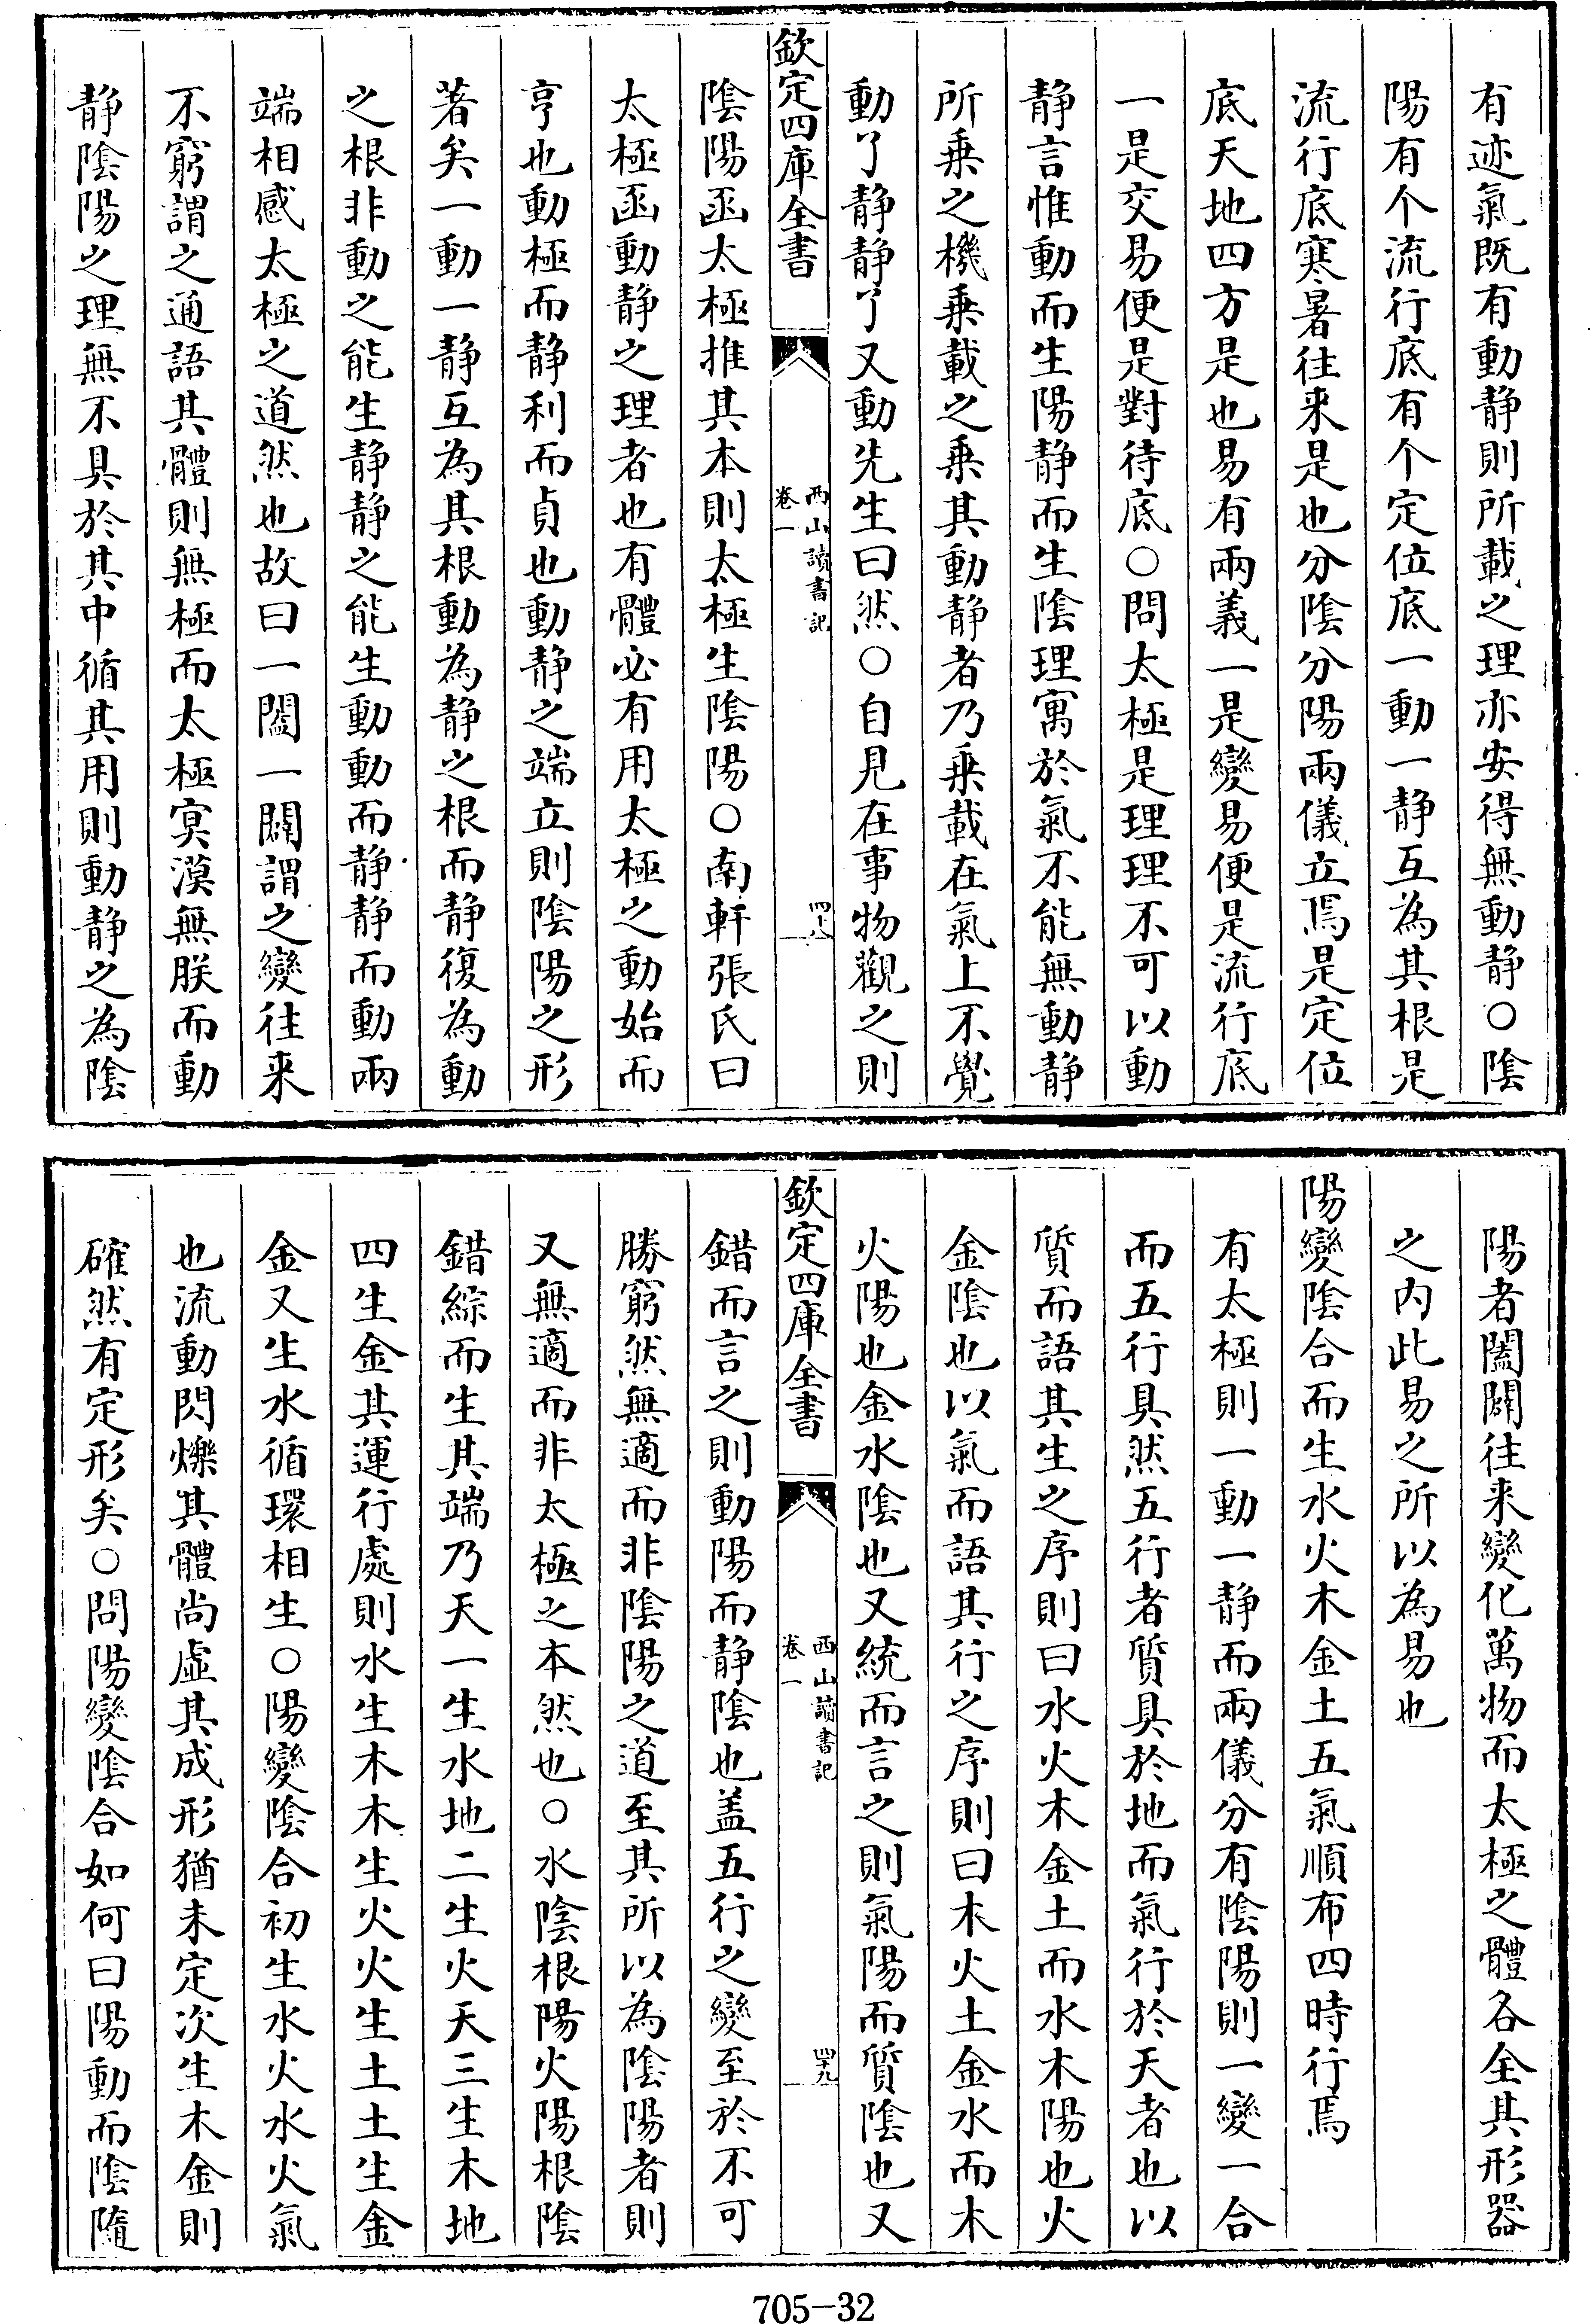 有迹氣既有動静則所載之理亦安得無動静○陰
陽有个流行底有个定位底一動一静互為其根是
流行底寒暑往来是也分陰分陽兩儀立焉是定位
底天地四方是也易有兩義一是變易便是流行底
一是交易便是對待底○問太極是理理不可以動
静言惟動而生陽静而生陰理寓於氣不能無動静
所乗之機乗載之乗其動静者乃乗載在氣上不覺
動了静静了又動先生曰然○自見在事物觀之則
欽定四庫全書
西山讀書記
卷一
四十八
陰陽函太極推其本則太極生陰陽○南軒張氏曰
太極函動静之理者也有體必有用太極之動始而
亨也動極而静利而貞也動静之端立則陰陽之形
著矣一動一静互為其根動為静之根而静復為動
之根非動之能生静静之能生動動而静静而動兩
端相感太極之道然也故曰一闔一闢謂之變往来
不窮謂之通語其體則無極而太極㝠漠無朕而動
静陰陽之理無不具於其中循其用則動静之為陰
陽者闔闢往来變化萬物而太極之體各全其形器
之内此易之所以為易也
陽變陰合而生水火木金土五氣順布四時行焉
有太極則一動一静而兩儀分有陰陽則一變一合
而五行具然五行者質具於地而氣行於天者也以
質而語其生之序則曰水火木金土而水木陽也火
金陰也以氣而語其行之序則曰木火土金水而木
火陽也金水陰也又統而言之則氣陽而質陰也又
欽定四庫全書
西山讀書記
卷一
四十九
錯而言之則動陽而静陰也盖五行之變至於不可
勝窮然無適而非陰陽之道至其所以為陰陽者則
又無適而非太極之本然也○水陰根陽火陽根陰
錯綜而生其端乃天一生水地二生火天三生木地
四生金其運行處則水生木木生火火生土土生金
金又生水循環相生○陽變陰合初生水火水火氣
也流動閃爍其體尚虚其成形猶未定次生木金則
確然有定形矣○問陽變陰合如何曰陽動而陰隨
705-32